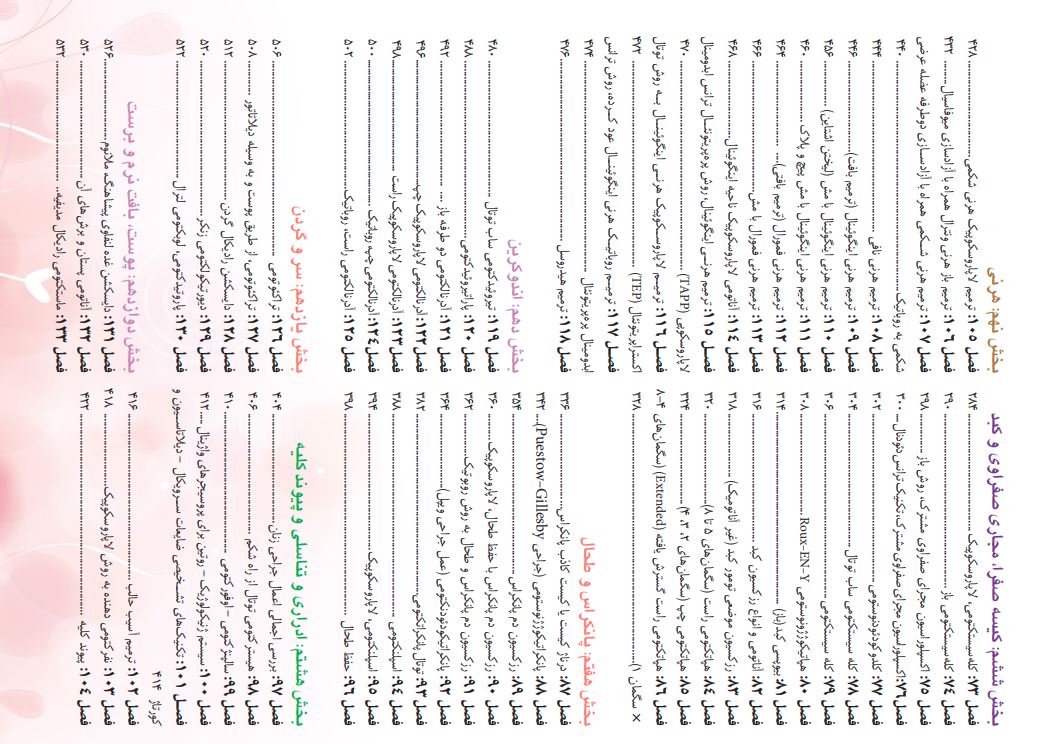 بخش ششم: کیسه صفرا، مجاری صفراوی و کبد
فصل ۷۳: کله‌سیستکتومی، لاپاروسکوپیک ۲۸۴
فصل ۷۴: کله‌سیستکتومی باز ۲۹۰
فصل ۷۵: اکسپلوراسیون مجرای صفراوی مشترک، روش باز ۲۹۸
فصل ۷۶: اکسپلوراسیون مجرای صفراوی مشترک، تکنیک ترانس‌دئودنال ۳۰۰
فصل ۷۷: کلدوکودئودنوستومی ۳۰۲
فصل ۷۸: کله سیستکتومی ساب توتال ۳۰۴
فصل ۷۹: کله سیستکتومی ۳۰۶
فصل ۸۰: هپاتیکوژژونوستومی Roux-EN-Y ۳۰۸
فصل ۸۱: بیوپسی کبد (باز) ۳۱۴
فصل ۸۲: آناتومی و انواع رزکسیون کبد ۳۱۶
فصل ۸۳: رزکسیون موضعی تومور کبد (غیر آناتومیک) ۳۱۸
فصل ۸۴: هپاتکتومی راست (سگمان‌های ۵ تا ۸) ۳۲۰
فصل ۸۵: هپاتکتومی چپ (سگمان‌های ۲، ۳، ۴) ۳۲۴
فصل ۸۶: هپاتکتومی راست گسترش یافته (Extended) (سگمان‌های ۴-۸
× سگمان ۱) ۳۲۸
بخش هفتم: پانکراس و طحال
فصل ۸۷: درناژ کیست یا کیست کاذب پانکراس ۳۳۶
فصل ۸۸: پانکراتیکوژژونوستومی (جراحی Puestow-Gillesby) ۳۴۲
فصل ۸۹: رزکسیون دم پانکراس ۳۵۴
فصل ۹۰: رزکسیون دم پانکراس با حفظ طحال، لاپاروسکوپیک ۳۶۰
فصل ۹۱: رزکسیون دم پانکراس و طحال به روش روبوتیک ۳۶۲
فصل ۹۲: پانکراتیکودئودنکتومی (عمل جراحی ویپل) ۳۶۴
فصل ۹۳: توتال پانکراتکتومی ۳۸۲
فصل ۹۴: اسپلنکتومی ۳۸۸
فصل ۹۵: اسپلنکتومی، لاپاروسکوپیک ۳۹۴
فصل ۹۶: حفظ طحال ۳۹۸
بخش هشتم: ادراری و تناسلی و پیوند کلیه
فصل ۹۷: بررسی اجمالی اعمال جراحی زنان ۴۰۴
فصل ۹۸: هیسترکتومی توتال از راه شکم ۴۰۶
فصل ۹۹: سالپنژکتومی - اوفورکتومی ۴۱۰
فصل ۱۰۰: سیستم ژنیکولوژیک - روتین برای پروسیجرهای واژینال ۴۱۲
فصل ۱۰۱: تکنیک‌های تشخیصی ضایعات سرویکال - دیلاتاسیون و
کورتاژ ۴۱۴
فصل ۱۰۲: ترمیم آسیب حالب ۴۱۶
فصل ۱۰۳: نفرکتومی دهنده به روش لاپاروسکوپیک ۴۱۸
فصل ۱۰۴: پیوند کلیه ۴۲۲
بخش نهم: هرنی
فصل ۱۰۵: ترمیم لاپاروسکوپیک هرنی شکمی ۴۲۸
فصل ۱۰۶: ترمیم باز هرنی ونترال همراه با آزادسازی میوفاسیال ۴۳۲
فصل ۱۰۷: ترمیم هرنی شکمی همراه با آزادسازی دوطرفه عضله عرضی
شکمی به روباتیک ۴۴۰
فصل ۱۰۸: ترمیم هرنی نافی ۴۴۴
فصل ۱۰۹: ترمیم هرنی اینگوئینال (ترمیم بافت) ۴۴۶
فصل ۱۱۰: ترمیم هرنی اینگوئینال با مش (لیختن اشتاین) ۴۵۶
فصل ۱۱۱: ترمیم هرنی اینگوئینال با مش پیچ و پلاک ۴۶۰
فصل ۱۱۲: ترمیم هرنی فمورال (ترمیم بافتی) ۴۶۴
فصل ۱۱۳: ترمیم هرنی فمورال با مش ۴۶۶
فصل ۱۱۴: آناتومی لاپاروسکوپیک ناحیه اینگوئینال ۴۶۸
فصل ۱۱۵: ترمیم هرنی اینگوئینال، روش پره‌پریتوئنال ترانس ابدومینال
لاپاروسکوپی (TAPP) ۴۷۰
فصل ۱۱۶: ترمیم لاپاروسکوپیک هرنی اینگوئینال به روش توتال
اکستراپریتوئنال (TEP) ۴۷۲
فصل ۱۱۷: ترمیم روباتیک هرنی اینگوئینال عود کرده، روش ترانس
ابدومینال پره‌پریتوئنال ۴۷۴
فصل ۱۱۸: ترمیم هیدروسل ۴۷۶
بخش دهم: اندوکرین
فصل ۱۱۹: تیروئیدکتومی ساب توتال ۴۸۰
فصل ۱۲۰: پاراتیروئیدکتومی ۴۸۸
فصل ۱۲۱: آدرنالکتومی دو طرفه باز ۴۹۲
فصل ۱۲۲: آدرنالکتومی لاپاروسکوپیک چپ ۴۹۶
فصل ۱۲۳: آدرنالکتومی لاپاروسکوپیک راست ۴۹۸
فصل ۱۲۴: آدرنالکتومی چپ روباتیک ۵۰۰
فصل ۱۲۵: آدرنالکتومی راست، روباتیک ۵۰۲
بخش یازدهم: سر و گردن
فصل ۱۲۶: تراکئوتومی ۵۰۶
فصل ۱۲۷: تراکئوتومی، از طریق پوست و به وسیله دیلاتاتور ۵۰۸
فصل ۱۲۸: دایسکشن رادیکال گردن ۵۱۲
فصل ۱۲۹: دیورتیکولکتومی زنکر ۵۲۰
فصل ۱۳۰: پاروتیدکتومی، لوبکتومی لترال ۵۲۲
بخش دوازدهم: پوست، بافت نرم و برست
فصل ۱۳۱: دایسکشن غده لنفاوی پیشاهنگ، ملانوم ۵۲۶
فصل ۱۳۲: آناتومی پستان و برش‌های آن ۵۳۰
فصل ۱۳۳: ماستکتومی رادیکال مدیفیه ۵۳۲